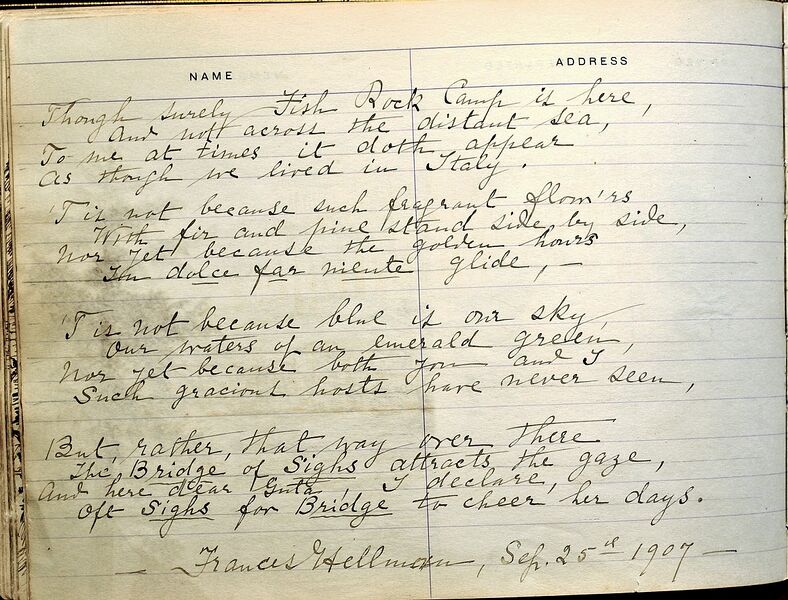 NAME
ADDRESS
Though surely Fish Rock Camp is here,
And not across the distant sea,
To me at times it doth appear
As though we lived in Italy.
'T is not because such fragrant flow'rs
With fir and pine stand side by side,
Nor yet because the golden hours
In dolce far niente glide, —
'T is not because blue is our sky,
Our waters of an emerald green,
Nor yet because both you and I
Such gracious hosts have never seen,
But, rather, that way over there
The Bridge of Sighs attracts the gaze,
And here dear Guta, I declare,
Oft Sighs for Bridge to cheer her days.
— Frances Hellman, Sep. 25th 1907 —